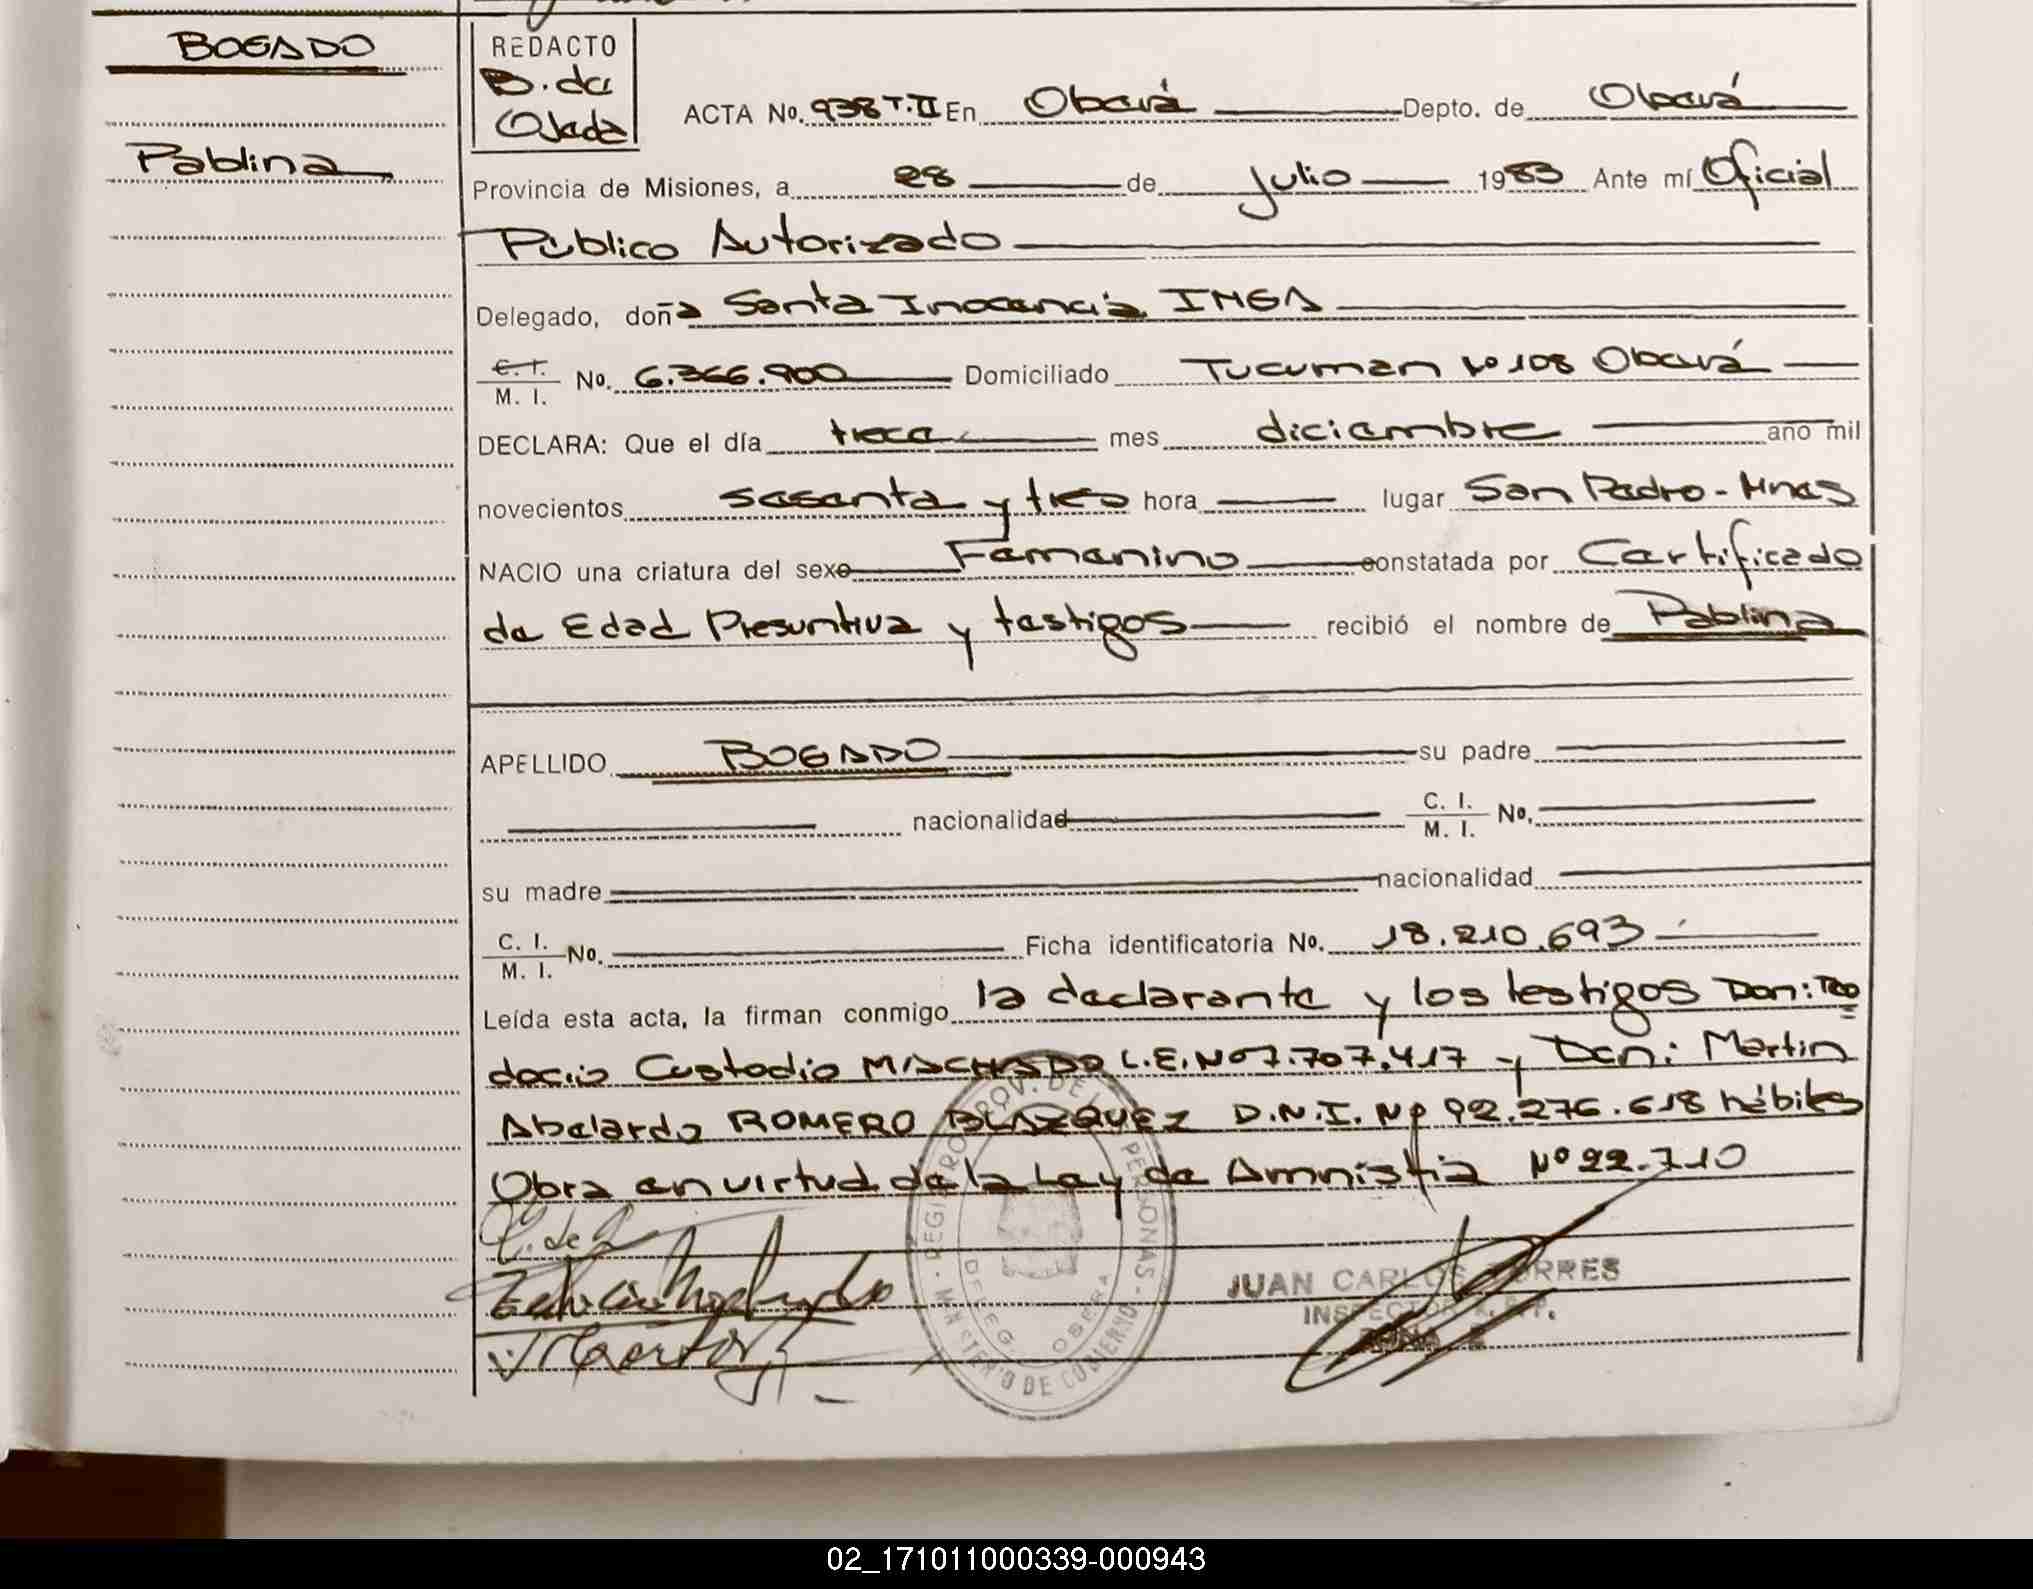 BOGADO
Pablina
REDACTO
B. de
Ojeda
ACTA No. 938 T.II En Oberá Depto. de Oberá
Provincia de Misiones, a 28 de julio 1983 Ante mí Oficial
Público Autorizado
Delegado, doña Santa Inocencia INGA
C. I. M. I. No. 6.366.900 Domiciliado Tucuman Nº 108 Oberá
DECLARA: Que el día trece mes diciembre año mil
novecientos sesenta y tres hora lugar San Pedro - Mnes
NACIO una criatura del sexo Femenino constatada por Certificado
de Edad Presuntiva y testigos recibió el nombre de Pablina
APELLIDO BOGADO su padre
nacionalidad C. I. M. I. No.
su madre nacionalidad
C. I. M. I. No. Ficha identificatoria No. 18.210.693
Leída esta acta, la firman conmigo la declarante y los testigos Don: Teo
docio Custodio MACHADO L.E. Nº 7.707.417 y Don: Martin
Abelardo ROMERO BLAZQUEZ D.N.I. Nº 92.276.618 hábiles
Obra en virtud de la Ley de Amnistia Nº 22.710
REGISTRO PROV. DE PERSONAS - MINISTERIO DE GOBIERNO
DELEG. OBERA
JUAN CARLOS TORRES
INSPECTOR R. P. P.
ZONA
02_171011000339-000943